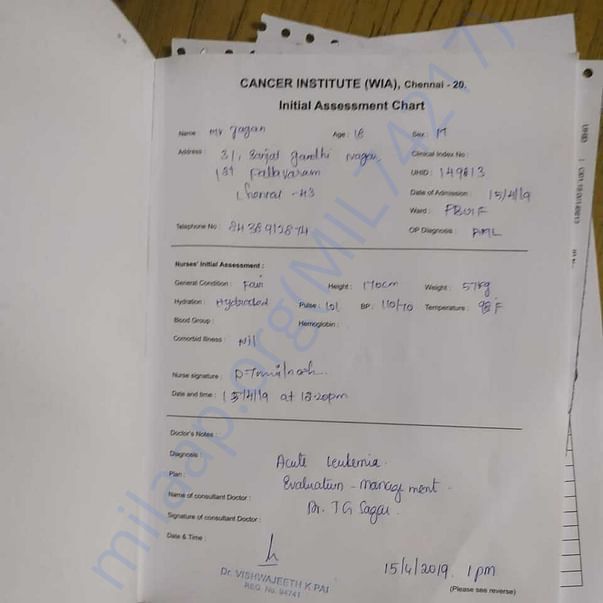 CANCER INSTITUTE (WIA), Chennai - 20.
Initial Assessment Chart
Name : Mr. Jagan Age : 18 Sex : M
Address : 31, Sanjai Gandhi Nagar Clinical Index No :
1st Pallavaram UHID : 149813
Chennai - 43 Date of Admission : 15/4/19
Ward :
Telephone No : 8438912874 OP Diagnosis : AML
Nurses' Initial Assessment :
General Condition : Fair Height : 170cm Weight : 57kg
Hydration : Hydrated Pulse : 101 BP : 110/70 Temperature : 98°F
Blood Group : Hemoglobin :
Comorbid Illness : Nil
Nurse signature :
Date and time : 15/4/19 at 12.20pm
Doctor's Notes :
Diagnosis : Acute Leukemia.
Plan : Evaluation - management -
Name of consultant Doctor : Dr. TG Sagar.
Signature of consultant Doctor :
Date & Time : 15/4/2019. 1pm
Dr. VISHWAJEETH K PAI
REG. No. 94741
(Please see reverse)
milaap.org(MIL742417)